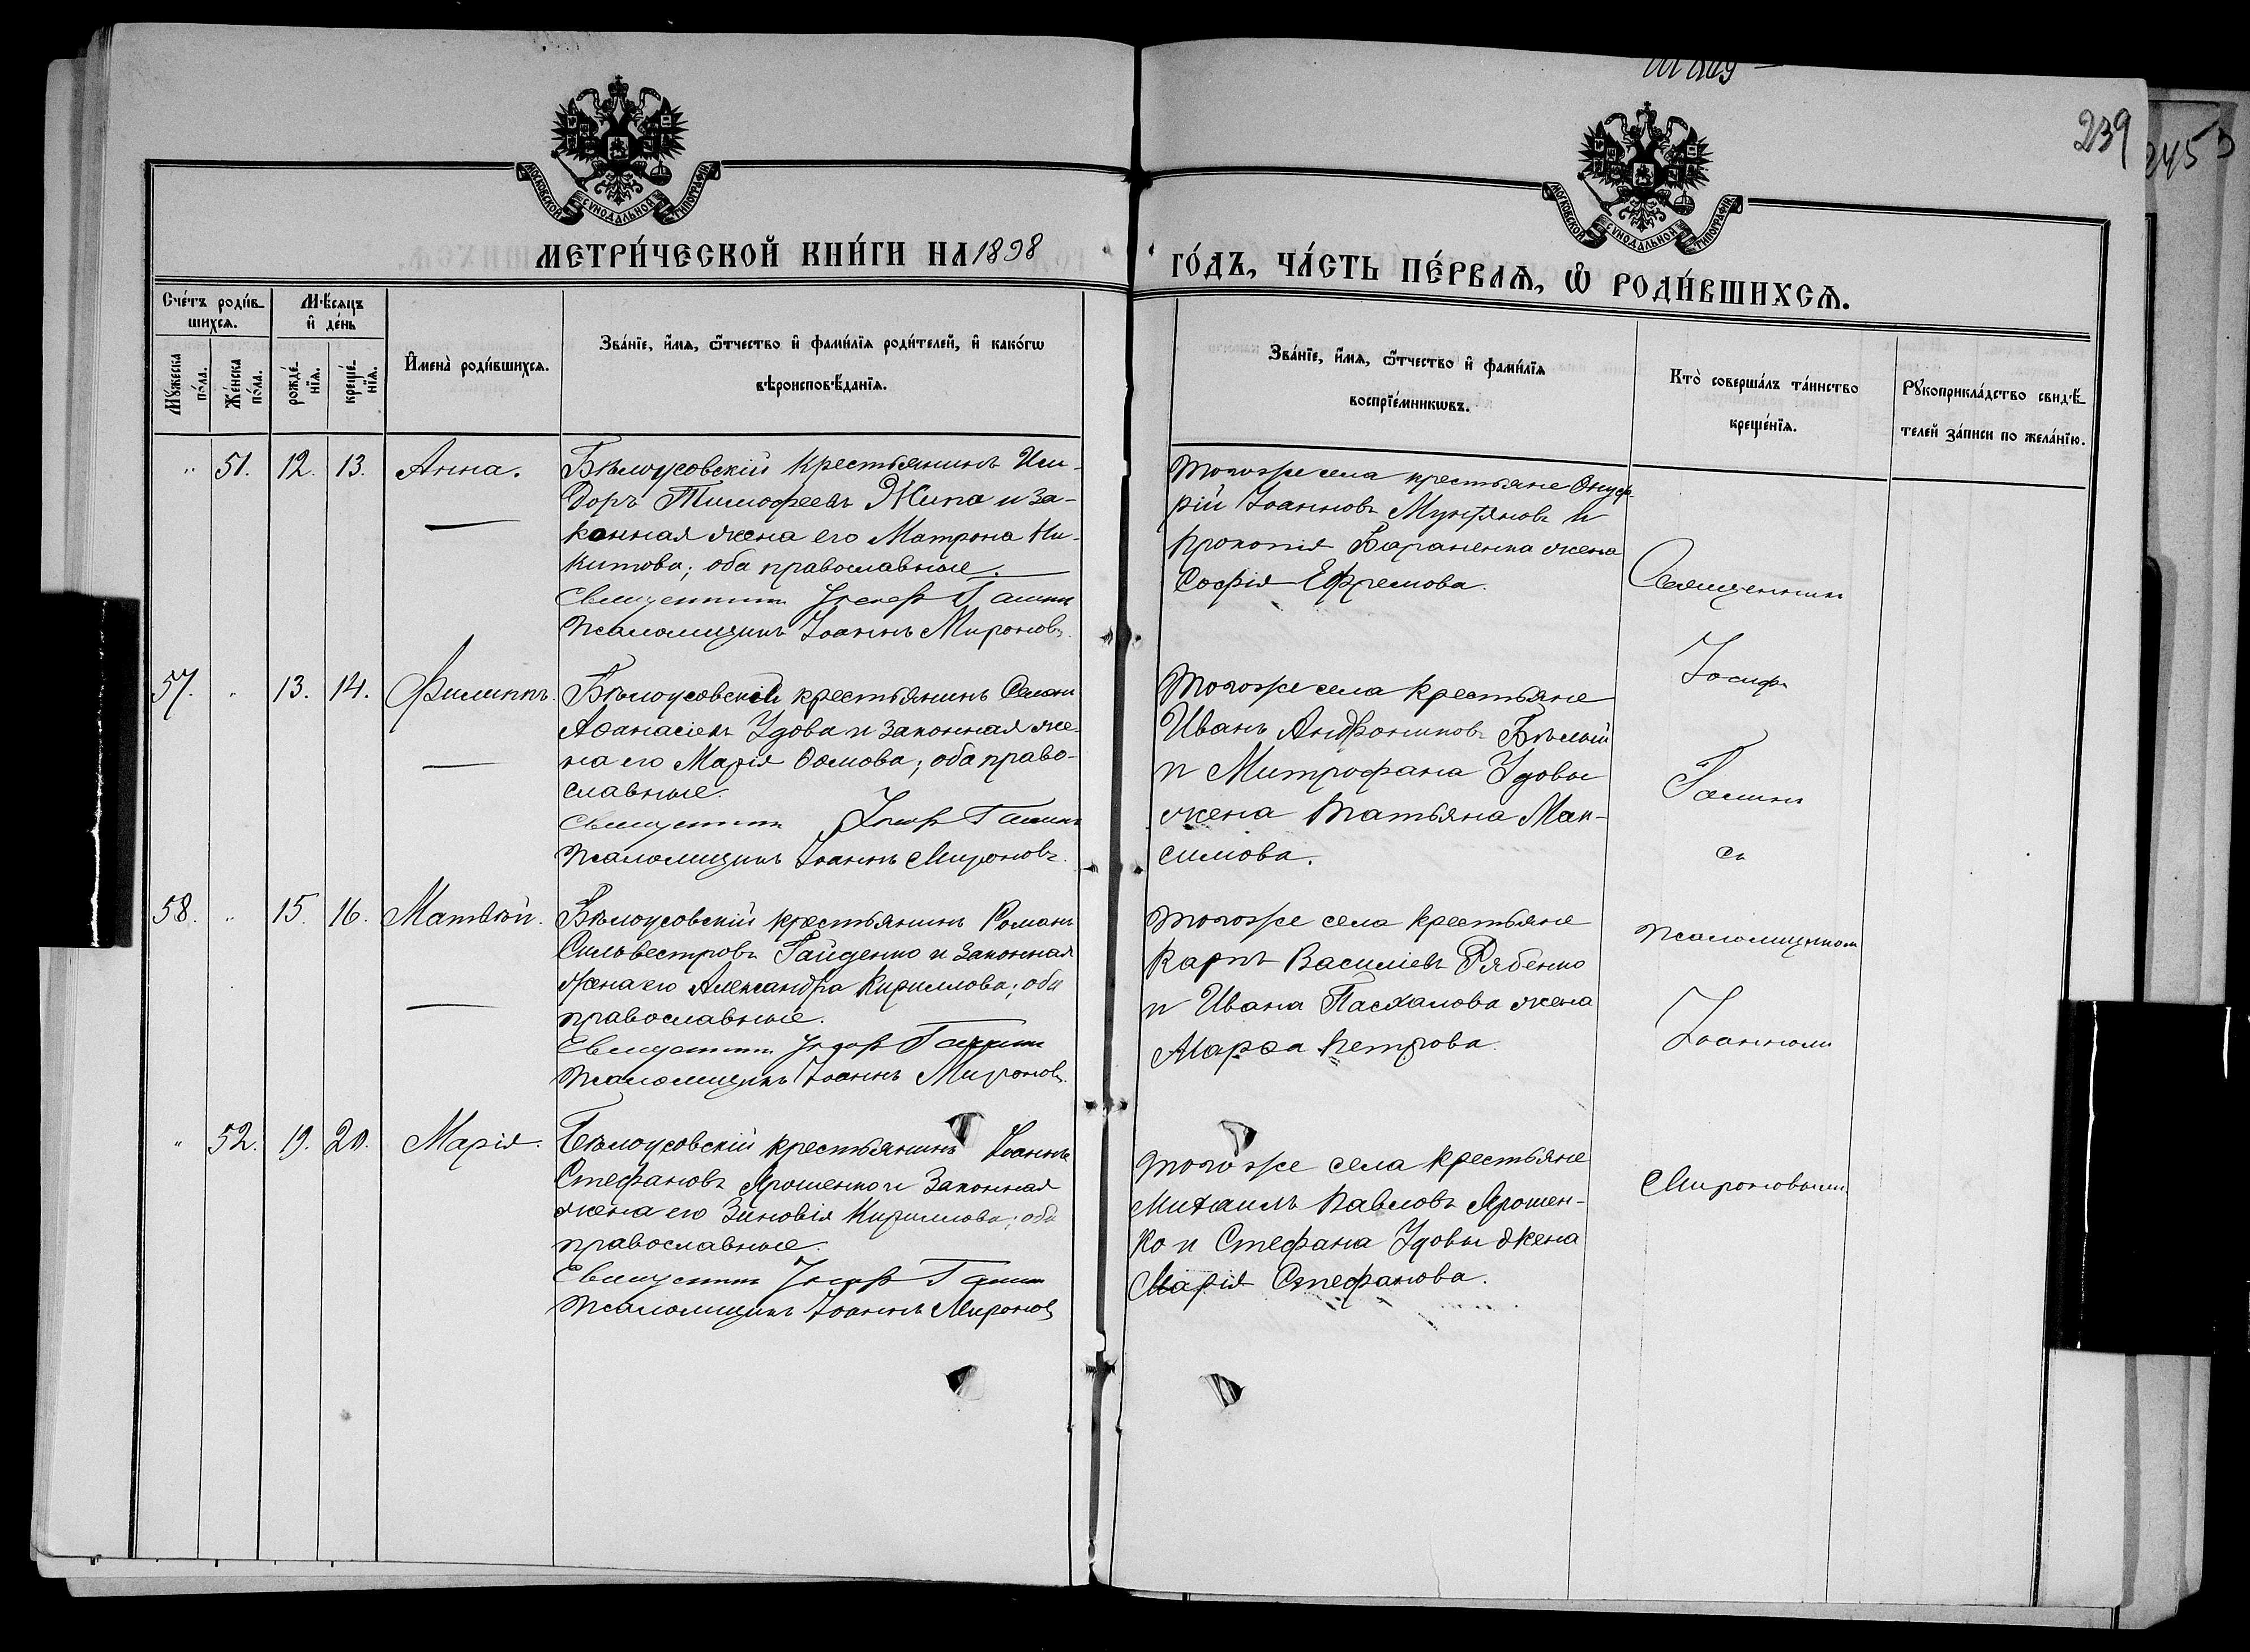 239
245
МОСКОВСКОЙ СУНОДАЛЬНОЙ ТИПОГРАФІИ
МОСКОВСКОЙ СУНОДАЛЬНОЙ ТИПОГРАФІИ
МЕТРИ́ЧЕСКОЙ КНИ́ГИ НА 1898
ГО́ДЪ, ЧА́СТЬ ПЕ́РВАѦ, Ѽ РОДИ́ВШИХСѦ.
Сче́тъ роди́в-
шихсѧ.
Мѣ́сѧцъ
и҆ де́нь
Мꙋ́жеска по́ла.
Же́нска по́ла.
рожде́-нїѧ.
креще́-нїѧ.
И҆мена̀ роди́вшихсѧ.
Зва́нїе, и҆́мѧ, ѻ҆́тчество и҆ фами́лїѧ роди́телей, и҆ како́гѡ
вѣроисповѣ́данїѧ.
Зва́нїе, и҆́мѧ, ѻ҆́тчество и҆ фами́лїѧ
воспрїе́мникѡвъ.
Кто̀ соверша́лъ та́инство
креще́нїѧ.
Рꙋкоприкла́дство свидѣ́-
телей за́писи по жела́нїю.
" 51. 12. 13. Анна.
Бѣлоусовскій крестьянинъ Иси-
доръ Тимофеевъ Жипа и за-
конная жена его Матрона Ни-
китова; оба православные.
Священникъ Іосиф Галин
Псаломщикъ Іоаннъ Мироновъ.
Того же села крестьяне Онуф-
рій Іоанновъ Мунтяновъ и
Прокопія Бараненка жена
Софія Ефремова.
57. " 13. 14. Филиппъ.
Бѣлоусовскій крестьянинъ
Аѳанасіевъ Удова и законная же-
на его Марія Ѳомова; оба право-
славные.
Священникъ Іосиф Галин
Псаломщикъ Іоаннъ Мироновъ.
Того же села крестьяне
Иванъ Андрониковъ Бѣлый
и Митрофана Удовы
жена Татьяна Мак-
симова.
58. " 15. 16. Матвѣй.
Бѣлоусовскій крестьянинъ Романъ
Сильвестровъ Гайденко и законная
жена его Александра Кириллова; оба
православные.
Священникъ Іосиф Галин
Псаломщикъ Іоаннъ Мироновъ.
Того же села крестьяне
Карпъ Василіевъ Рябенко
и Ивана Пасхалова жена
Марѳа Петрова.
" 52. 19. 20. Марія.
Бѣлоусовскій крестьянинъ Іоаннъ
Стефановъ Ярошенко и законная
жена его Зиновія Кириллова; оба
православные.
Священникъ Іосиф Галин
Псаломщикъ Іоаннъ Мироновъ
Того же села крестьяне
Михаилъ Павловъ Ярошен-
ко и Стефана Удовы жена
Марія Стефанова.
Священникъ
Іосифъ
Галинъ
съ
псаломщикомъ
Іоанномъ
Мироновымъ.